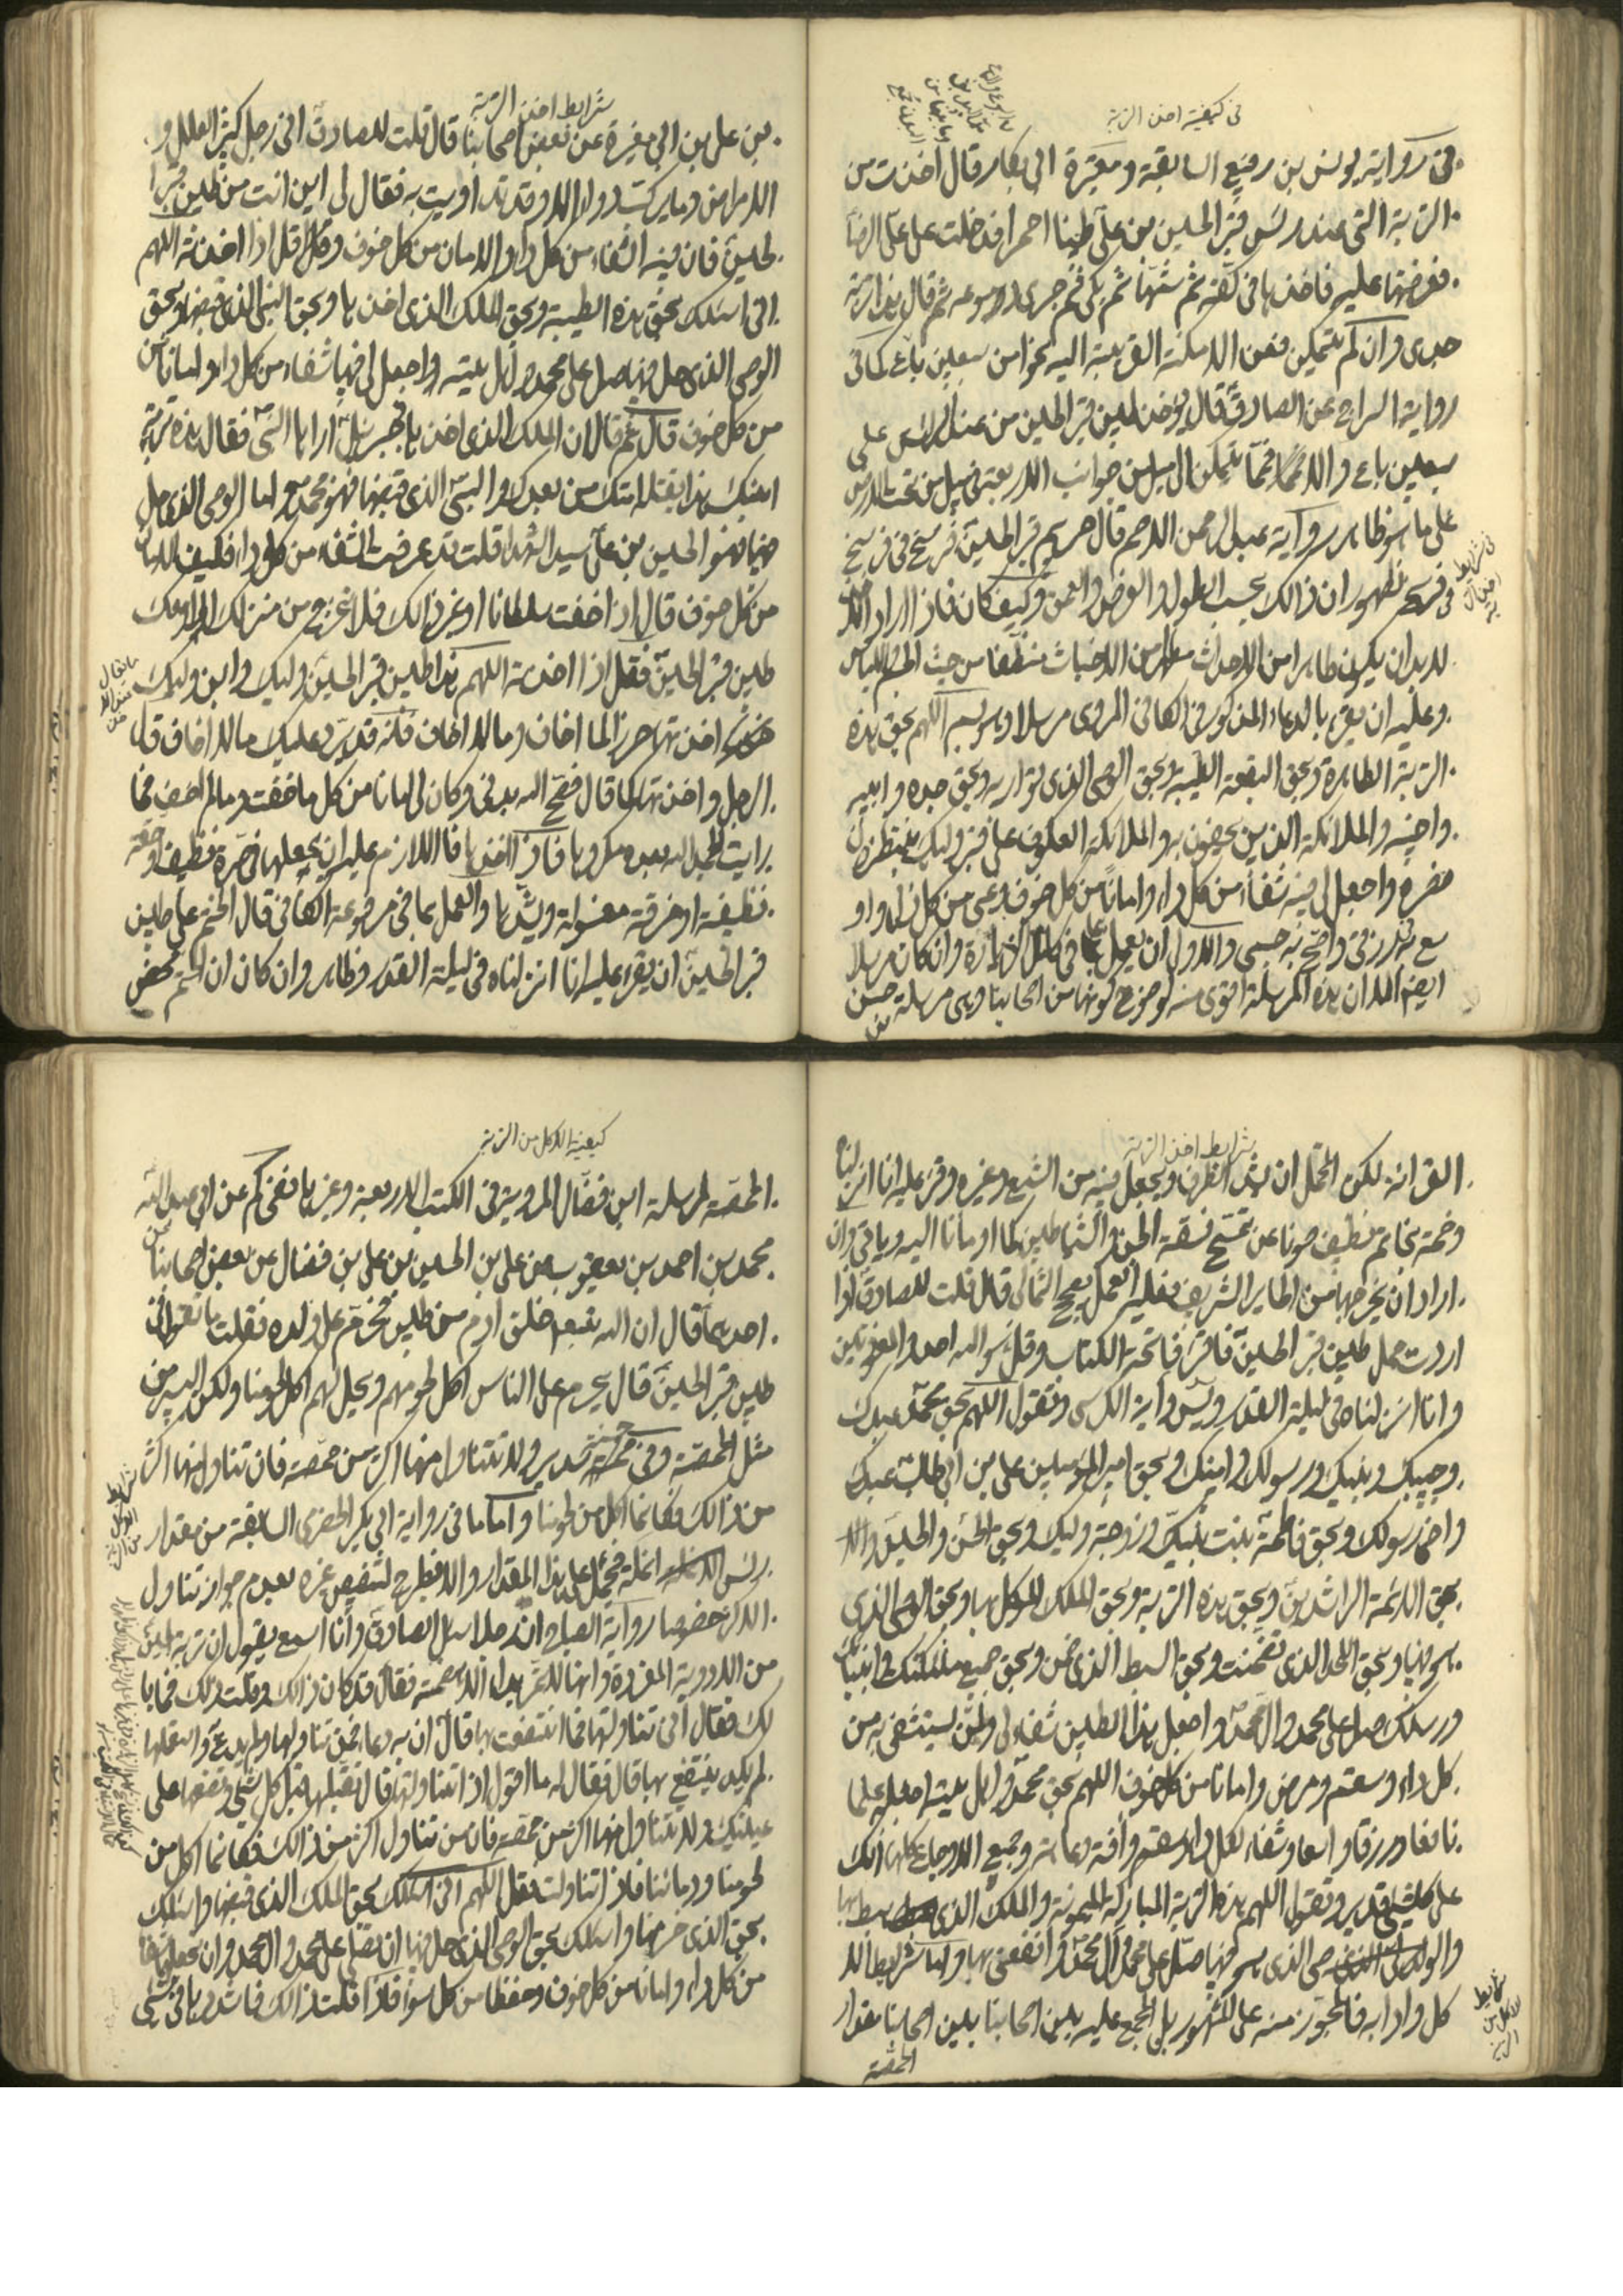 في كيفية اخذ التربة
في رواية يونس بن رفيع السابقة ومعتبرة ابي بكار قال اخذت من
التربة التي عند رأس قبر الحسين بن علي طينا احمر فدخلت على علي الرضا
فعرضتها عليه فاخذها في كفه ثم شمها ثم بكى ثم جرى دموعه ثم قال هذه تربة
جدي وان لم يتمكن فمن الامكنة القريبة اليه نحوا من سبعين باع كما في
رواية السراج عن الصادق قال يؤخذ طين قبر الحسين من عند الراس على
سبعين باع والا فمما يتمكن الى ميل من جوانب الاربعة
على ما هو ظاهر رواية عبد الرحمن الاصم قال حريم قبر الحسين فرسخ في فرسخ
في فرسخ لظهور ان ذالك بحسب الطول والعرض والعمق وكيف كان فاذا اراد
لابد ان يكون طاهرا من الاحداث من الاخباث منظفا من حيث الجسم واللباس
وعليه ان يقرء بالدعاء المذكور في الكافي المروي مرسلا وهو بسم اللهم بحق هذه
التربة الطاهرة وبحق البقعة الطيبة وبحق الوصي الذي تواريه وبحق جده وابيه
واخيه والملائكة الذين يحفون به والملائكة العكوف على قبر وليك ينتظرون
نصره واجعل لي فيه شفاء من كل داء وامانا من كل خوف وغنى من كل
به في رزقي واصح به جسمي والاولى ان يعمل بما في كامل الزيارة وان كان مرسلا
ايضا الا ان هذه المرسلة اقوى منه لوضوح كونها من اصحابنا وهي مرسلة حسن
بن
شرايط اخذ التربة
بن علي بن ابي مغيرة عن بعض اصحابنا قال قلت للصادق اني رجل كثير العلل و
الامراض وما تركت دواء الا وقد تداويت به فقال لي اين انت من طين قبر
الحسين فان فيه الشفاء من كل داء والامان من كل خوف وقل اذا اخذته اللهم
اني اسئلك بحق هذه الطينة وبحق الملك الذي اخذها وبحق النبي الذي قبضها وبحق
الوصي الذي حل فيها صل على محمد واهل بيته واجعل لي فيها شفاء من كل داء وامانا
من كل خوف قال ثم قال ان الملك الذي اخذها فهو جبرئيل اراها النبي فقال هذه تربة
ابنك هذا يقتله امتك من بعدك والنبي الذي قبضها فهو محمد واما الوصي الذي حل
فيها فهو الحسين بن علي سيد الشهداء قلت قد عرفت الشفاء من كل داء فكيف الامان
من كل خوف قال اذا خفت سلطانا او غير ذالك فلا تخرج من منزلك الا ومعك
طين قبر الحسين فقل اذا اخذته اللهم هذا طين قبر الحسين وليك وابن وليك
اخذتها حرزا لما اخاف وما لا اخاف فانه قد يرد عليك ما لا تخاف قال
الرجل واخذتها كما قال فصح الله بدني وكان لي امانا من كل ما خفت وما لم اخف فما
رايت بحمد الله بعده مكروها فاذا اخذها فاللازم عليه ان يجعلها في صرة نظيفة او
نظيفة او خرقة مغسولة ويشدها والعمل بما في مرفوعة الكافي قال الختم على طين
قبر الحسين ان يقرء عليه انا انزلناه في ليلة القدر وظاهره وان كان ان الختم محض
شرايط اخذ التربة
القرائة لكن المحتمل ان يشد الظرف ويجعل فيه من الشمع وغيره وقرء عليه انا انزلناه
وختمه بخاتم نظيف صونا عن تمسح فسقة الجن والشياطين كما اومأنا اليه وياتي وان
اراد ان يخرجها من الحاير الشريف فعليه العمل بصحيح الثمالي قال قلت للصادق اذا
اردت حمل طين قبر الحسين فاقرأ فاتحة الكتاب وقل هو الله احد والمعوذتين
وانا انزلناه في ليلة القدر ويس واية الكرسي وتقول اللهم بحق محمد عبدك
وحبيبك ونبيك ورسولك وامينك وبحق امير المؤمنين علي بن ابي طالب عبدك
واخي رسولك وبحق فاطمة بنت نبيك وزوجة وليك وبحق الحسن والحسين و
بحق الائمة الراشدين وبحق هذه التربة وبحق الملك الموكل بها وبحق الوصي الذي
فيها وبحق الجسد الذي تضمنت وبحق السبط الذي ضمن وبحق جميع ملئكتك وانبيائك
ورسلك صل على محمد وال محمد واجعل هذا الطين شفاء لي ولمن يستشفي به من
كل داء وسقم ومرض وامانا من كل خوف اللهم بحق محمد واهل بيته اجعله علما
نافعا ورزقا واسعا وشفاء لكل داء وسقم وافة وعاهة وجميع الاوجاع كلها انك
على كل شيء قدير وتقول اللهم هذه التربة المباركة الميمونة والملك الذي هبط بها
والوصي الذي هو فيها صل على محمد وال محمد وانفعني بها واما شرايط الا
كل وادابه فالمجوز منه على المشهور بل المجمع عليه بين اصحابنا بلين اصحابنا مقدار
الحمصة
شرايط
الاكل من
التربة
كيفية الاكل من التربة
الحمصة لمرسلة ابن فضال المروية في الكتب الاربعة وغيرها ففي كم عن ابي عبد الله
محمد بن احمد بن يعقوب عن علي بن الحسين بن علي بن فضال عن بعض اصحابنا عن
احدهما قال ان الله تعالى خلق ادم من طين فحرم على ولده فقلت ما تقول في
طين قبر الحسين قال يحرم على الناس اكل لحومهم ويحل لهم اكل لحومنا ولكن اليسير من
مثل الحمصة وفي سدير ولا تتناول منها اكثر من حمصة فان تناول منها اكثر
من ذالك فكانما اكل من لحومنا واما ما في رواية ابي بكر الحضرمي السابقة من مقدار
رأس انملة فيحمل على هذا المقدار والا فيطرح لتنصيص غيره بعدم جواز تناول
الاكثر خصوصا رواية ان رجلا سئل الصادق وانا اسمع يقول ان تربة الحسين
من الادوية المفردة وانها لا تمر بداء الا هضمته فقال قد كان ذالك وقلت ذلك فما با
لك فقال اني تناولتها فما انتفعت بها قال ان به دعاء فمن تناولها ولم يدع واستعملها
لم يكد ينتفع بها قال فقال له ما اقول اذا تناولتها قال تقبلها قبل كل شيء وتضعها على
عينيك ولا تتناول منها اكثر من حمصة فان من تناول اكثر من ذالك فكانما اكل من
لحومنا ودمائنا فاذا تناولت فقل اللهم اني اسئلك بحق الملك الذي قبضها واسئلك
بحق الذي خزنها واسئلك بحق الوصي الذي حل فيها ان تصلي على محمد وال محمد وان تجعلها شفاء
من كل داء وامانا من كل خوف وحفظا من كل سوء فاذا قلت ذالك فاشددها في شيء